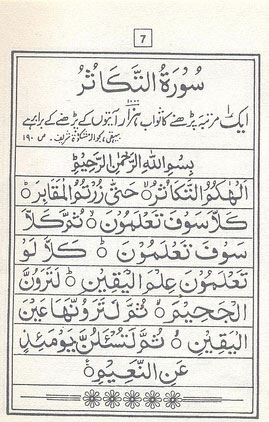 7
سُوْرَةُ التَّكَاثُرُ
ایک مرتبہ پڑھنے کا ثواب ہزار آیتوں کے پڑھنے کے برابر ہے
بیہقی بحوالہ مشکوٰۃ شریف ۔ ص ۱۹۰
بِسْمِ اللهِ الرَّحْمٰنِ الرَّحِيْمِ
اَلْهٰكُمُ التَّكَاثُرُ ۙ حَتّٰى زُرْتُمُ الْمَقَابِرَ ؕ
كَلَّا سَوْفَ تَعْلَمُوْنَ ۙ ثُمَّ كَلَّا
سَوْفَ تَعْلَمُوْنَ ؕ كَلَّا لَوْ
تَعْلَمُوْنَ عِلْمَ الْيَقِيْنِ ؕ لَتَرَوُنَّ
الْجَحِيْمَ ۙ ثُمَّ لَتَرَوُنَّهَا عَيْنَ
الْيَقِيْنِ ۙ ثُمَّ لَتُسْئَلُنَّ يَوْمَئِذٍ
عَنِ النَّعِيْمِ